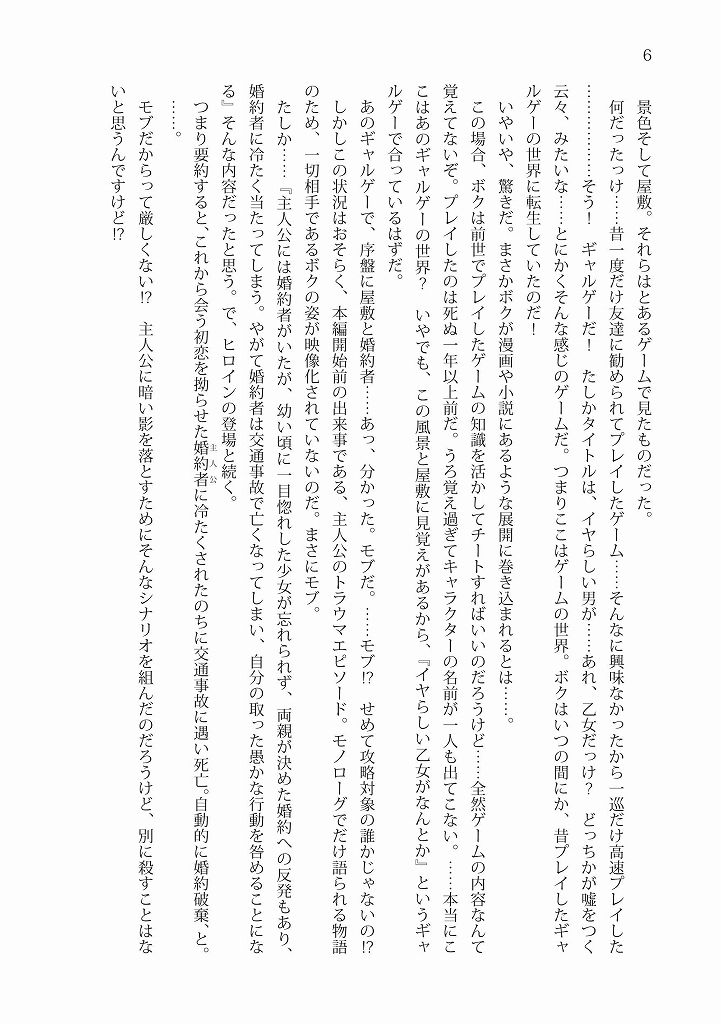 6
景色そして屋敷。それらはとあるゲームで見たものだった。
何だったっけ……昔一度だけ友達に勧められてプレイしたゲーム……そんなに興味なかったから一巡だけ高速プレイした
………………そう！　ギャルゲーだ！　たしかタイトルは、イヤらしい男が……あれ、乙女だっけ？　どっちかが嘘をつく
云々、みたいな……とにかくそんな感じのゲームだ。つまりここはゲームの世界。ボクはいつの間にか、昔プレイしたギャ
ルゲーの世界に転生していたのだ！
いやいや、驚きだ。まさかボクが漫画や小説にあるような展開に巻き込まれるとは……。
この場合、ボクは前世でプレイしたゲームの知識を活かしてチートすればいいのだろうけど……全然ゲームの内容なんて
覚えてないぞ。プレイしたのは死ぬ一年以上前だ。うろ覚え過ぎてキャラクターの名前が一人も出てこない。……本当にこ
こはあのギャルゲーの世界？　いやでも、この風景と屋敷に見覚えがあるから、『イヤらしい乙女がなんとか』というギャ
ルゲーで合っているはずだ。
あのギャルゲーで、序盤に屋敷と婚約者……あっ、分かった。モブだ。……モブ!?　せめて攻略対象の誰かじゃないの!?
しかしこの状況はおそらく、本編開始前の出来事である、主人公のトラウマエピソード。モノローグでだけ語られる物語
のため、一切相手であるボクの姿が映像化されていないのだ。まさにモブ。
たしか……『主人公には婚約者がいたが、幼い頃に一目惚れした少女が忘れられず、両親が決めた婚約への反発もあり、
婚約者に冷たく当たってしまう。やがて婚約者は交通事故で亡くなってしまい、自分の取った愚かな行動を咎めることにな
る』そんな内容だったと思う。で、ヒロインの登場と続く。
つまり要約すると、これから会う初恋を拗らせた婚約者に冷たくされたのちに交通事故に遇い死亡。自動的に婚約破棄、と。
主人公
……。
モブだからって厳しくない!?　主人公に暗い影を落とすためにそんなシナリオを組んだのだろうけど、別に殺すことはな
いと思うんですけど!?